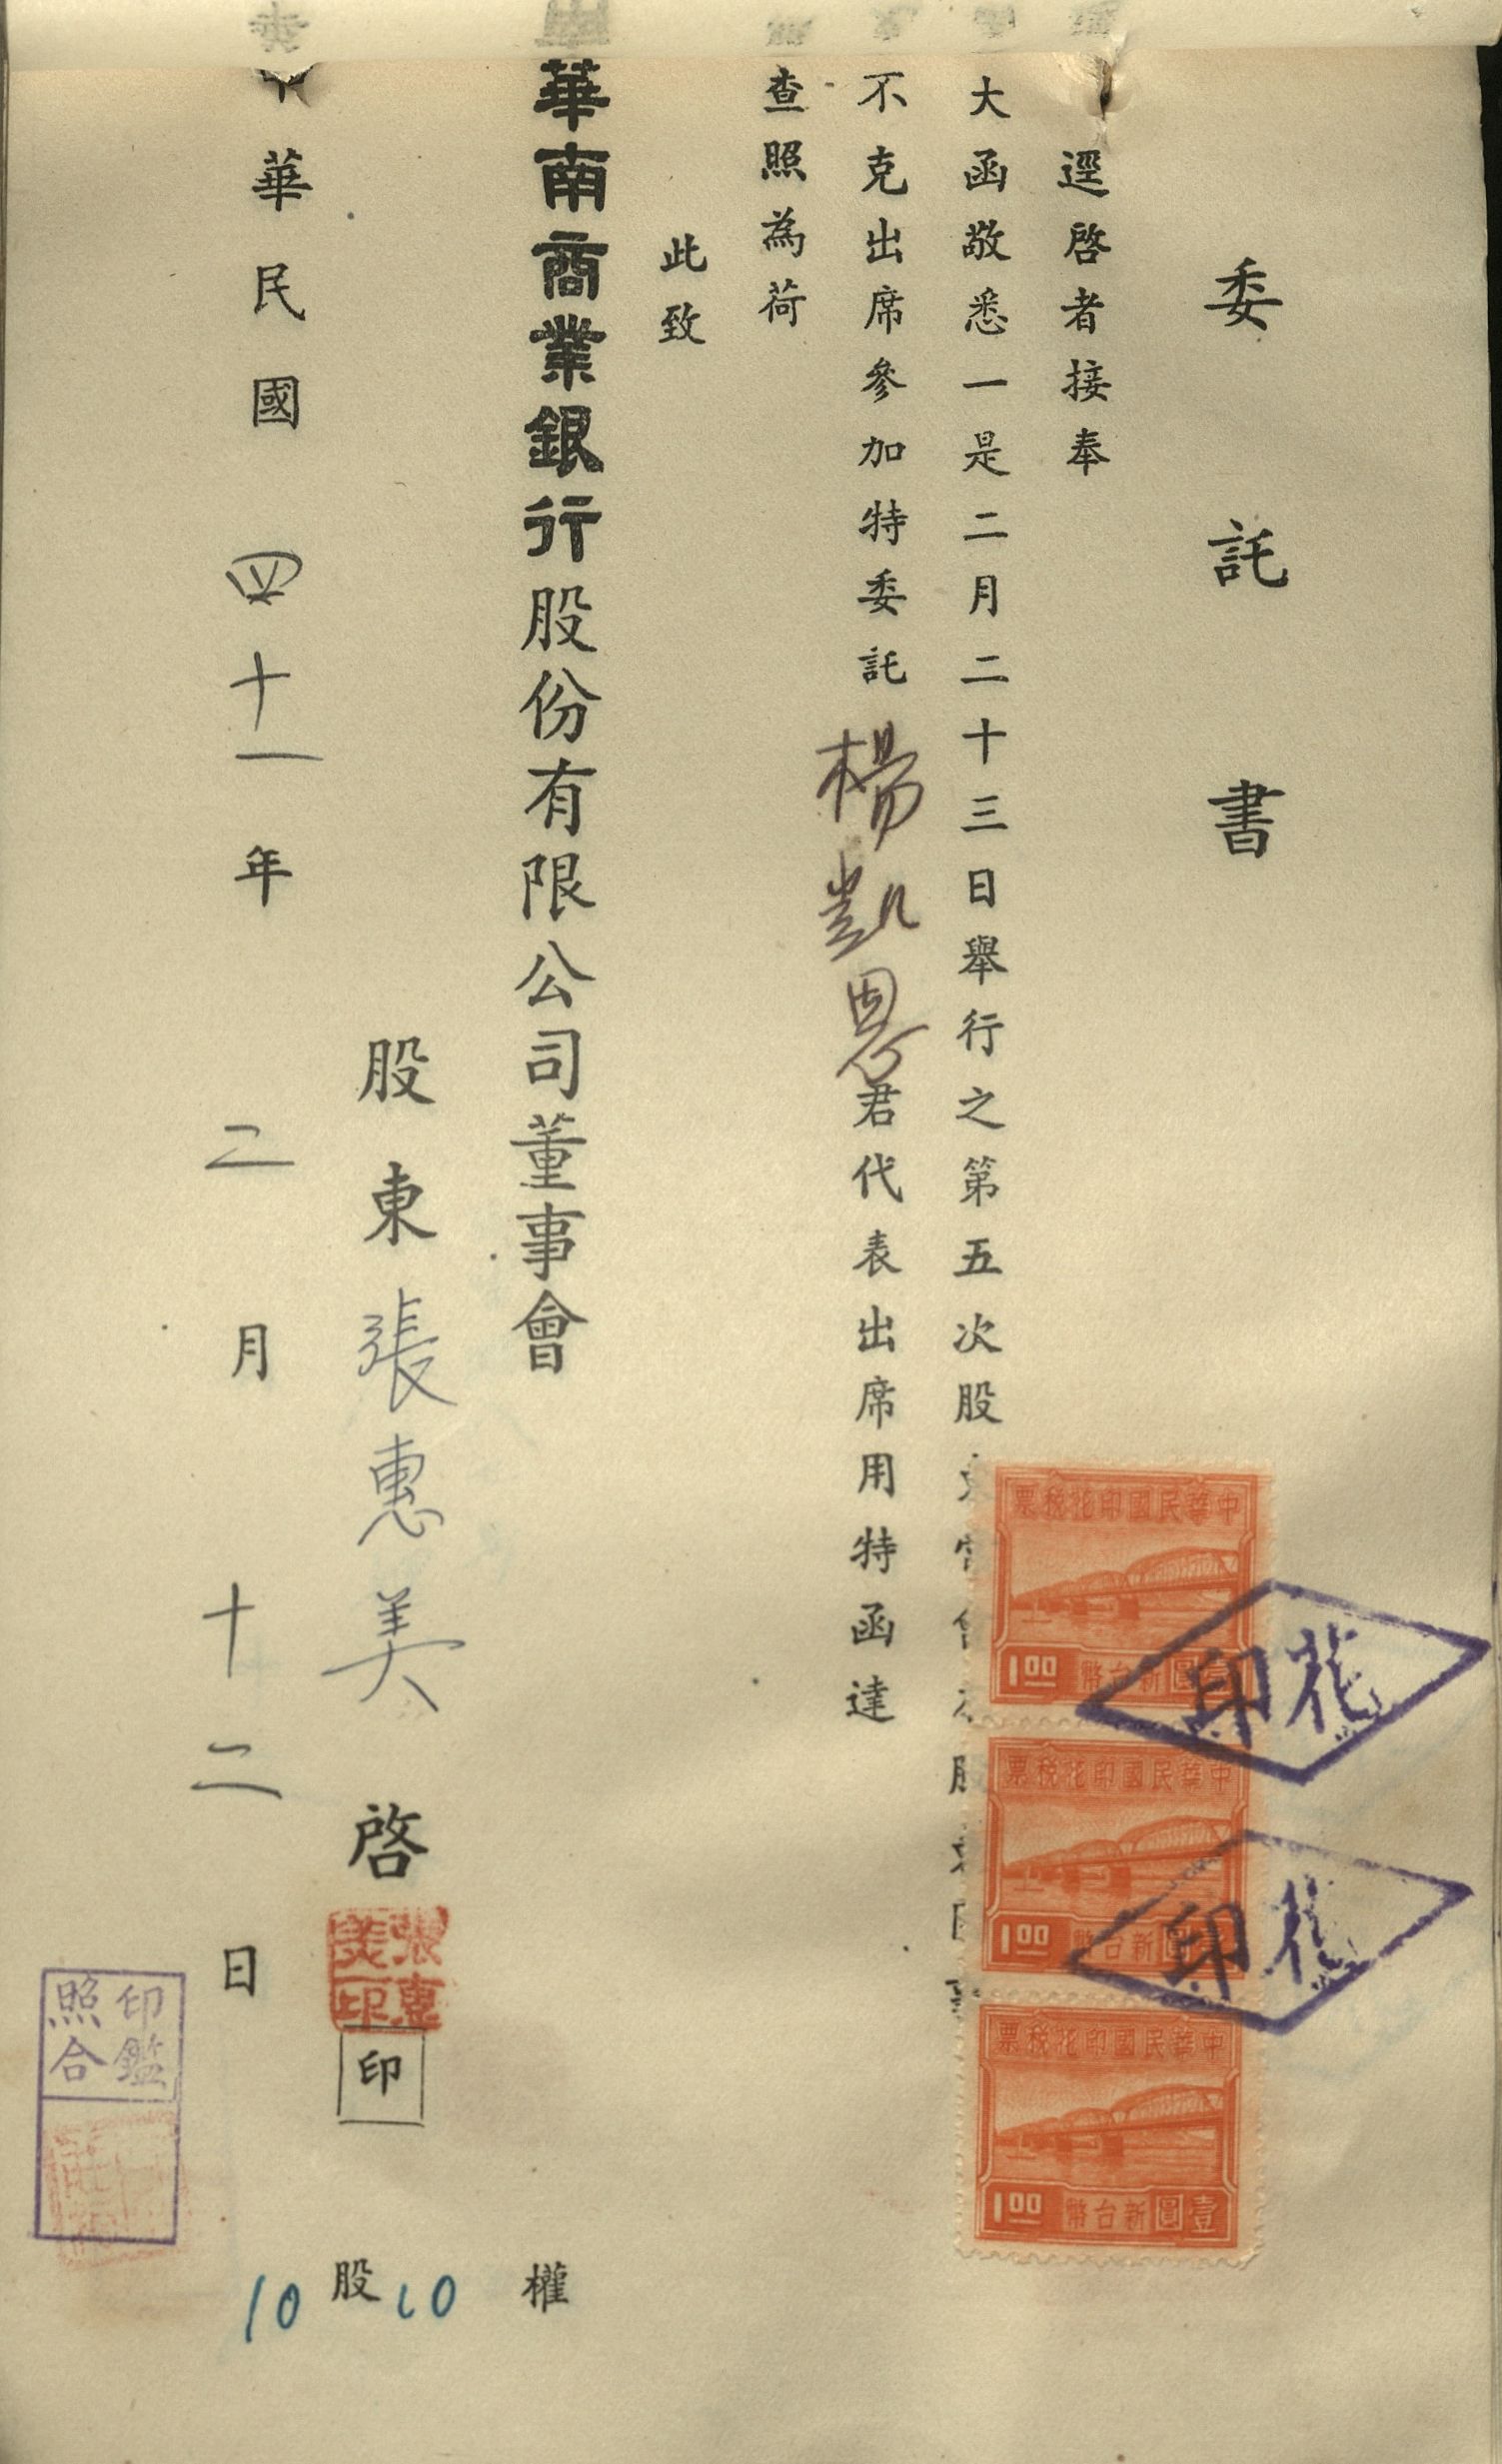 委託書
逕啓者接奉
大函敬悉一是二月二十三日舉行之第五次股
不克出席參加特委託楊凱恩君代表出席用特函達
查照為荷
此致
華南商業銀行股份有限公司董事會
股東張惠美啓
張惠美印
印
中華民國四十一年二月十二日
10股10權
印鑑照合
中華民國印花稅票
1.00 新台幣壹圓
中華民國印花稅票
1.00 新台幣壹圓
中華民國印花稅票
1.00 新台幣壹圓
印花
印花